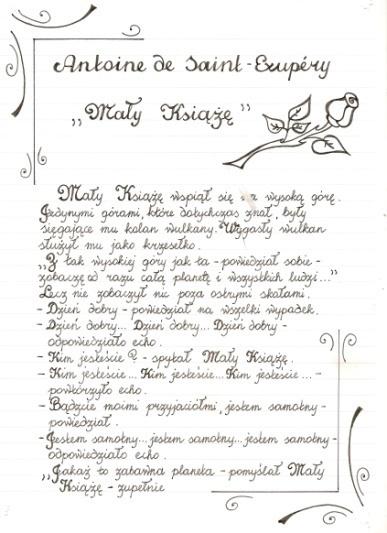 Antoine de Saint-Exupéry
„Mały Książę"
Mały Książę wspiął się na wysoką górę.
Jedynymi górami, które dotychczas znał, były
sięgające mu kolan wulkany. Wygasły wulkan
służył mu jako krzesełko.
„Z tak wysokiej góry jak ta - powiedział sobie -
zobaczę od razu całą planetę i wszystkich ludzi..."
Lecz nie zobaczył nic poza ostrymi skałami.
- Dzień dobry - powiedział na wszelki wypadek.
- Dzień dobry... Dzień dobry... Dzień dobry -
odpowiedziało echo.
- Kim jesteście? - spytał Mały Książę.
- Kim jesteście... Kim jesteście... Kim jesteście... -
powtórzyło echo.
- Bądźcie moimi przyjaciółmi, jestem samotny -
powiedział.
- Jestem samotny... jestem samotny... jestem samotny -
odpowiedziało echo.
„Jakaż to zabawna planeta - pomyślał Mały
Książę - zupełnie